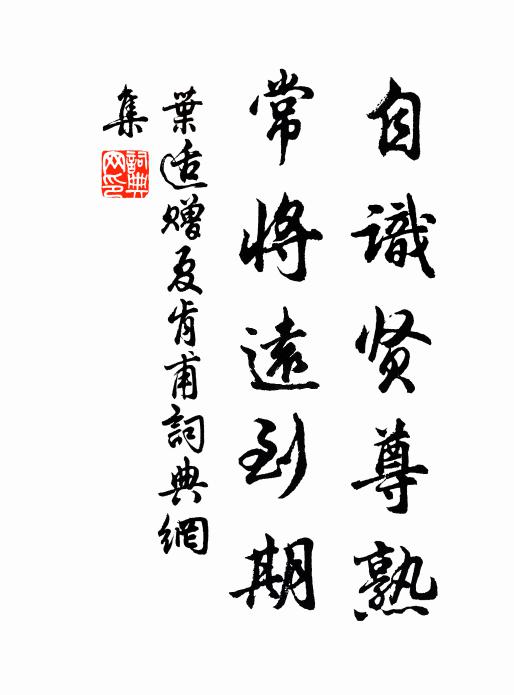 自識賢尊熟
常將遠到期
葉适贈夏肯甫詞典網
集
詞典网印